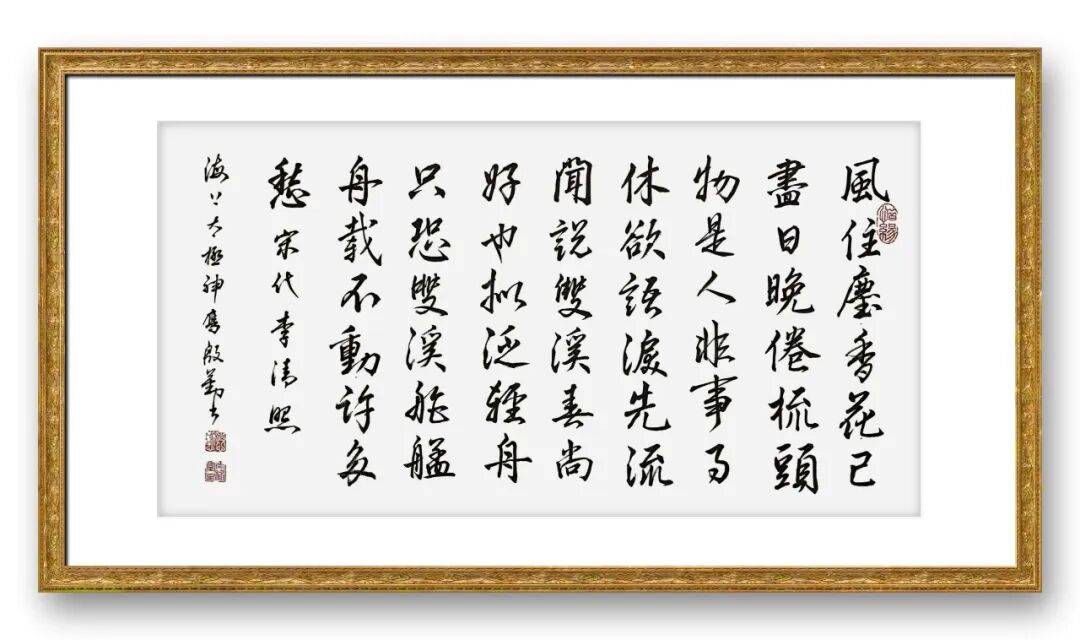 風住塵香花已
盡日晚倦梳頭
物是人非事事
休欲語淚先流
聞説雙溪春尚
好也拟泛輕舟
只恐雙溪舴艋
舟載不動許多
愁 宋代李清照
海上太極神鷹殷勤书